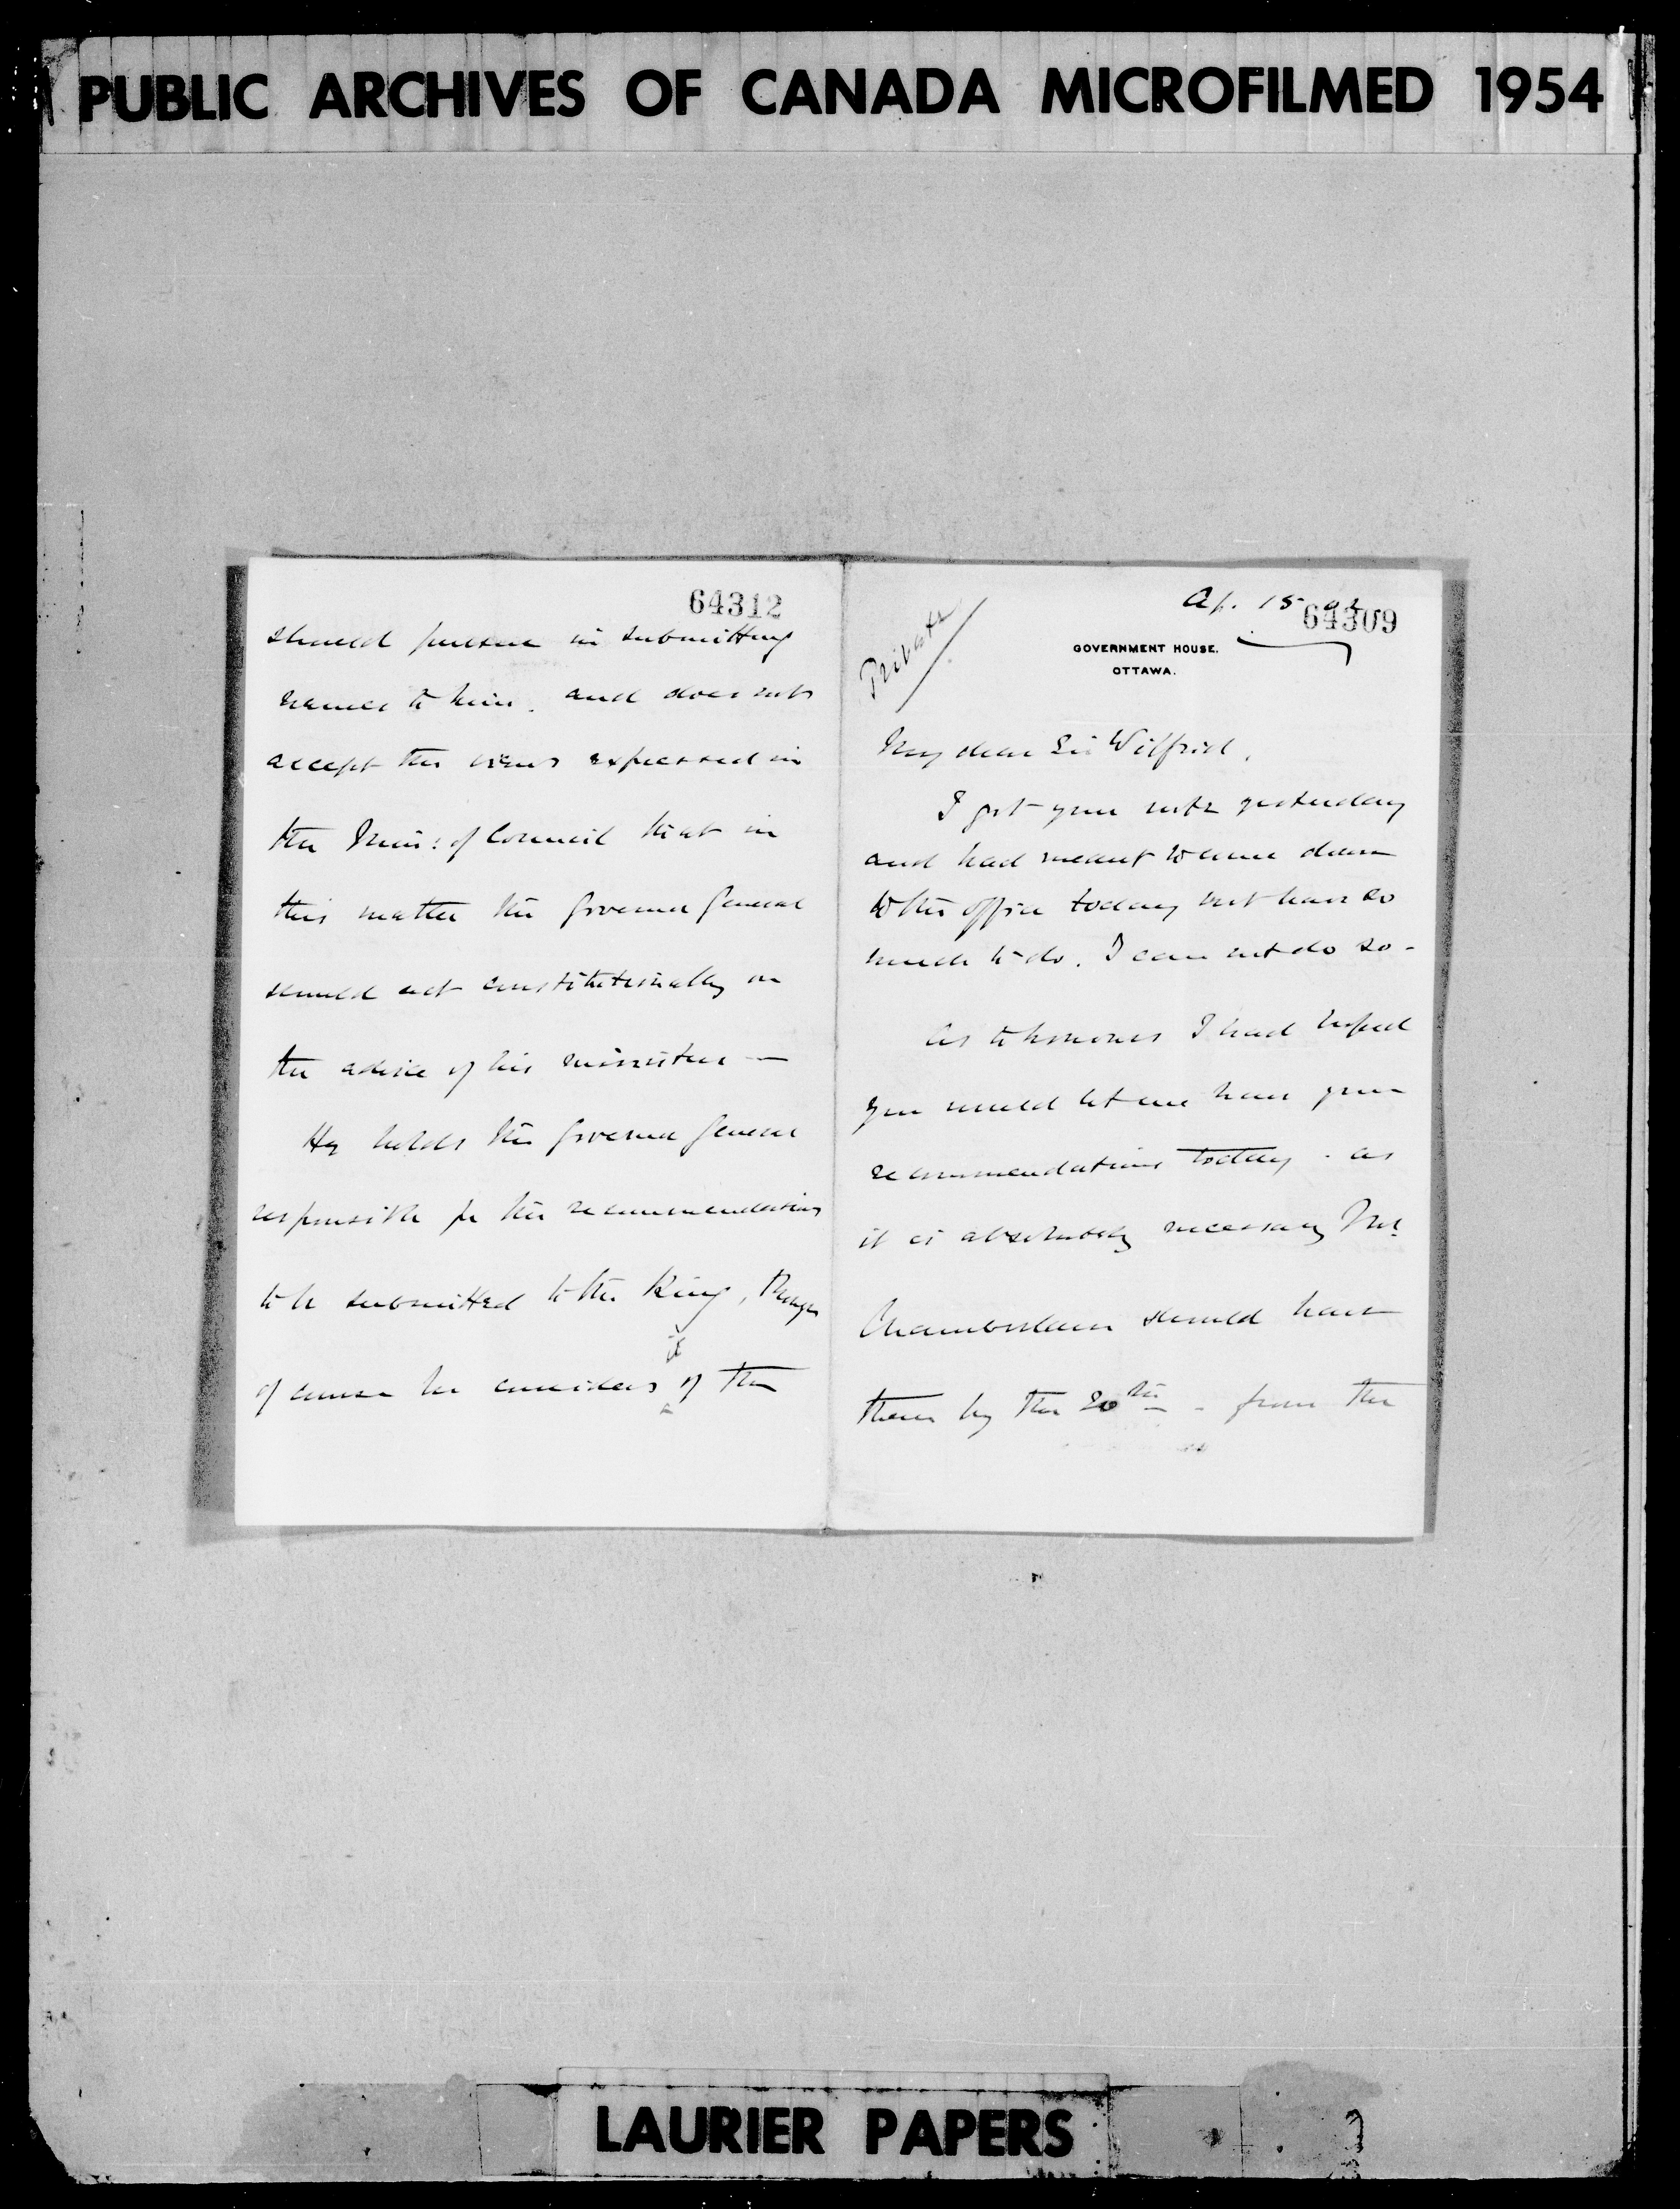 PUBLIC ARCHIVES OF CANADA MICROFILMED 1954
64312
should pursue in submitting
names to him, and does not
accept the views expressed in
the Min: of Council that in
this matter the Governor General
should act constitutionally on
the advice of his ministers —
He holds the Governor General
responsible for the recommendations
to be submitted to the King, though
of course he considers it of the
Ap. 15 02
64309
Private
GOVERNMENT HOUSE.
OTTAWA.
My dear Sir Wilfrid,
I got your note yesterday
and had meant to come down
to the office today but have so
much to do, I can not do so -
As to honours I had hoped
you would let me have your
recommendations today - as
it is absolutely necessary Mr.
Chamberlain should have
them by the 20th - from the
LAURIER PAPERS